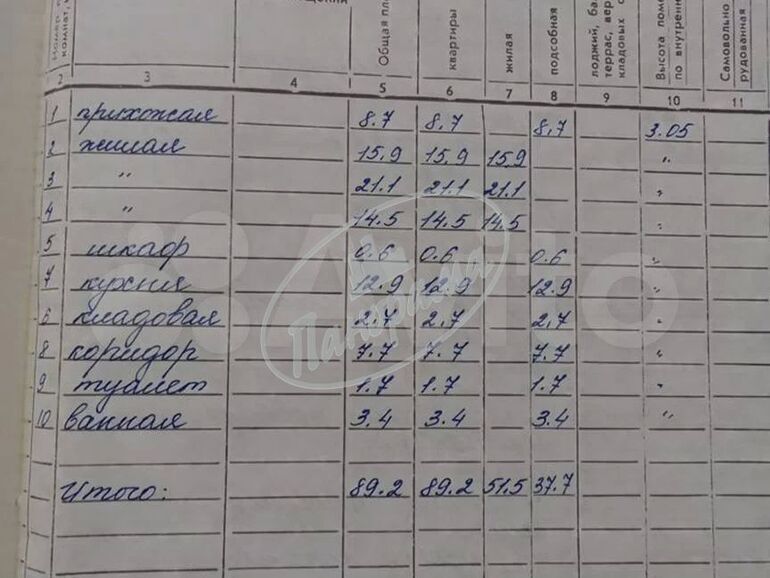 Общая пл
квартиры
жилая
подсобная
лоджий, бал
террас, вер
кладовых с
Высота поме
по внутренн
Самовольно
рудованная
2 3 4 5 6 7 8 9 10 11
1 прихожая 8.7 8.7 8.7 3.05
2 жилая 15.9 15.9 15.9 "
3 " 21.1 21.1 21.1 "
4 " 14.5 14.5 14.5 "
5 шкаф 0.6 0.6 0.6 "
7 кухня 12.9 12.9 12.9 "
6 кладовая 2.7 2.7 2.7 "
8 коридор 7.7 7.7 7.7 "
9 туалет 1.7 1.7 1.7 "
10 ванная 3.4 3.4 3.4 "
Итого: 89.2 89.2 51.5 37.7
Avito
Панорама